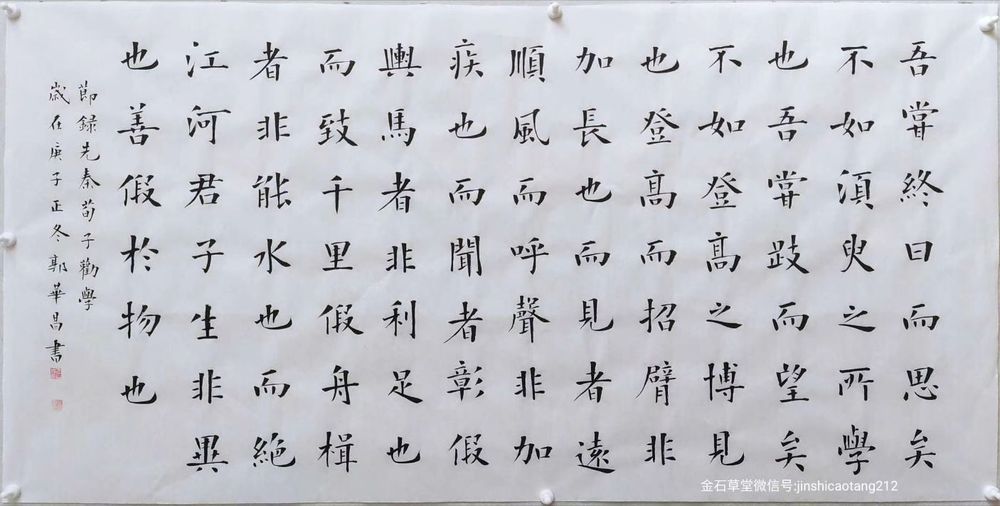 吾甞終日而思矣
不如湏臾之所學
也吾甞跂而望矣
不如登髙之博見
也登髙而招臂非
加長也而見者遠
順風而呼聲非加
疾也而聞者彰假
輿馬者非利足也
而致千里假舟楫
者非能水也而絶
江河君子生非異
也善假於物也
節録先秦荀子勸學
歲在庚子正冬郭華昌書
金石草堂微信号:jinshicaotang212